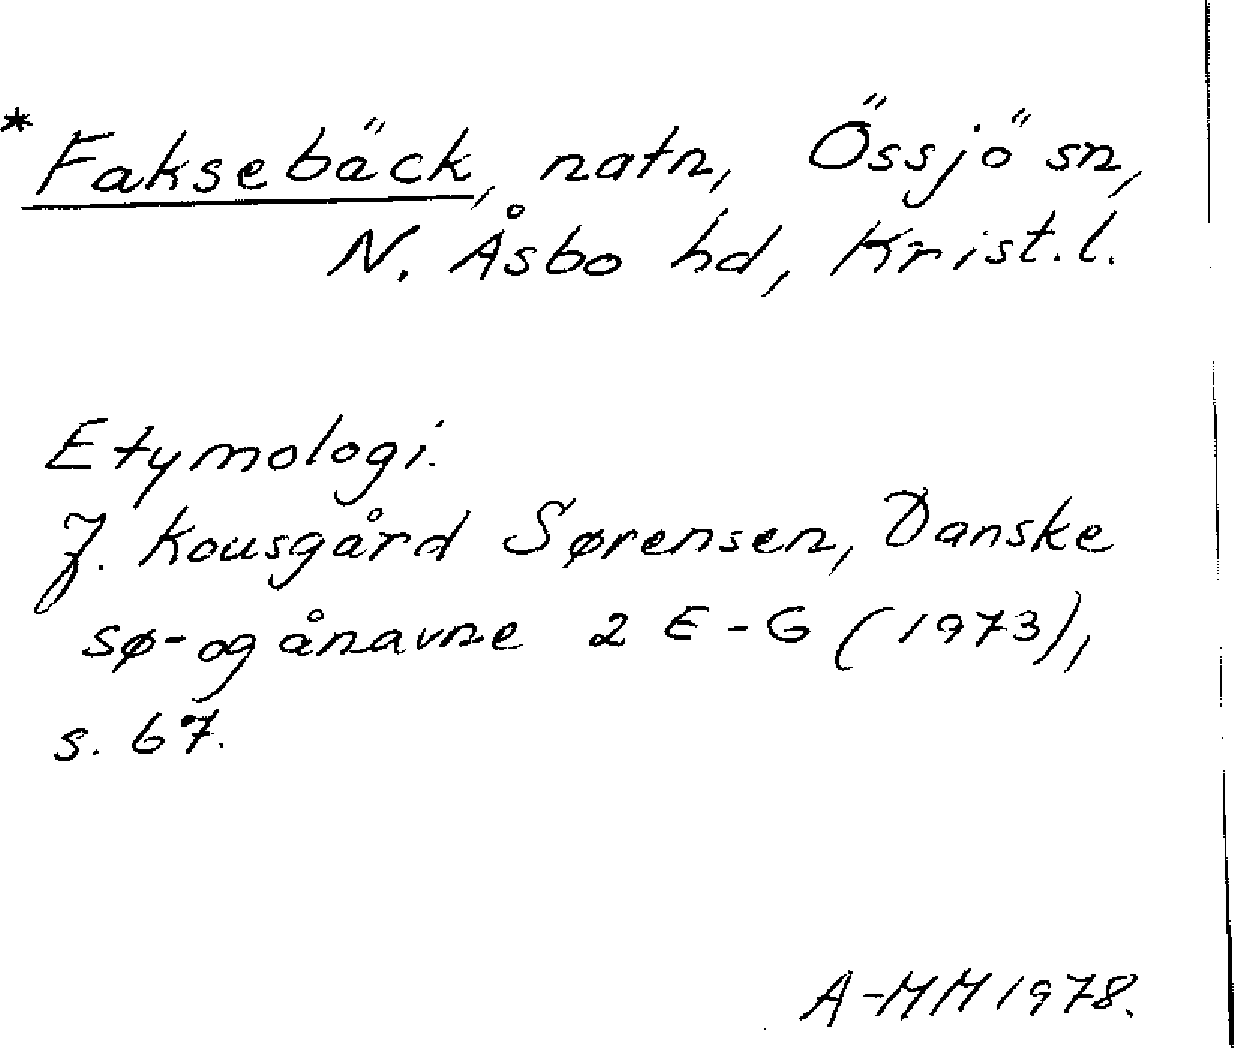 *Faksebäck, natn, Össjö sn,
N. Åsbo hd, Krist.l.
Etymologi.
J. Kousgård Sørensen, Danske
sø- og ånavne 2 E-G (1973),
s. 67.
A-MM 1978.